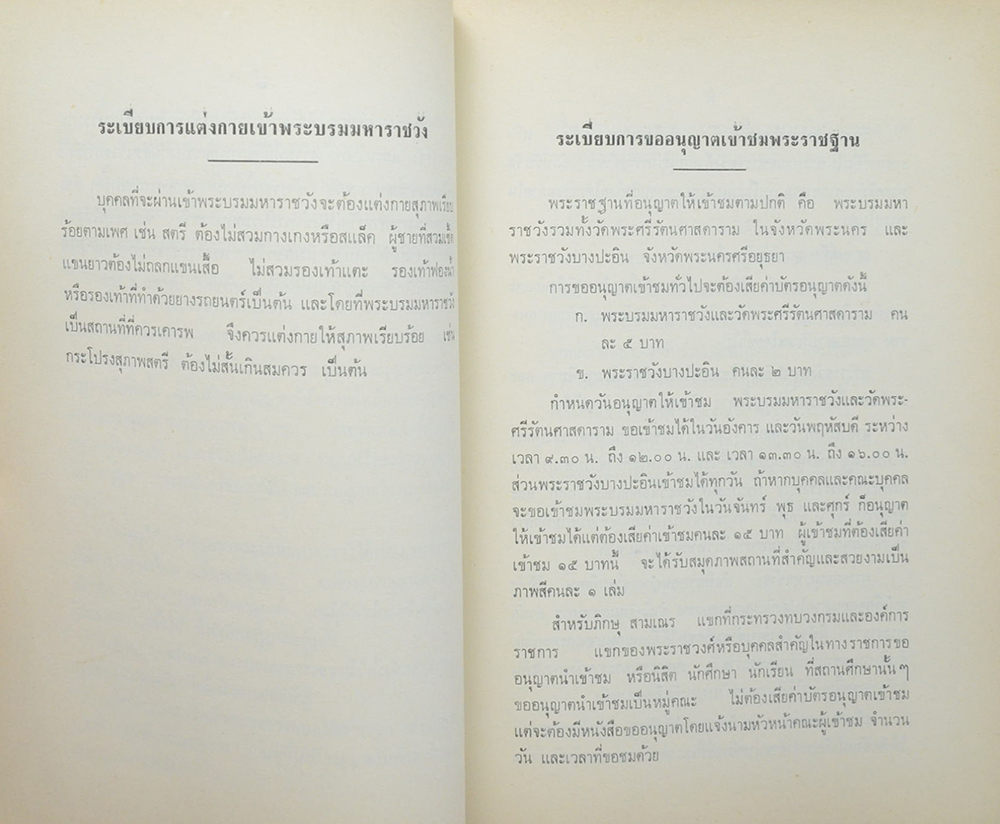 ระเบียบการแต่งกายเข้าพระบรมมหาราชวัง
บุคคลที่จะผ่านเข้าพระบรมมหาราชวังจะต้องแต่งกายสุภาพเรียบ
ร้อยตามเพศ เช่น สตรี ต้องไม่สวมกางเกงหรือสแล็ค ผู้ชายที่สวมเชิ้ต
แขนยาวต้องไม่ถลกแขนเสื้อ ไม่สวมรองเท้าแตะ รองเท้าฟองน้ำ
หรือรองเท้าที่ทำด้วยยางรถยนตร์เป็นต้น และโดยที่พระบรมมหาราชวัง
เป็นสถานที่ที่ควรเคารพ จึงควรแต่งกายให้สุภาพเรียบร้อย เช่น
กระโปรงสุภาพสตรี ต้องไม่สั้นเกินสมควร เป็นต้น
ระเบียบการขออนุญาตเข้าชมพระราชฐาน
พระราชฐานที่อนุญาตให้เข้าชมตามปกติ คือ พระบรมมหา
ราชวังรวมทั้งวัดพระศรีรัตนศาสดาราม ในจังหวัดพระนคร และ
พระราชวังบางปะอิน จังหวัดพระนครศรีอยุธยา
การขออนุญาตเข้าชมทั่วไปจะต้องเสียค่าบัตรอนุญาตดังนี้
ก. พระบรมมหาราชวังและวัดพระศรีรัตนศาสดาราม คน
ละ ๕ บาท
ข. พระราชวังบางปะอิน คนละ ๒ บาท
กำหนดวันอนุญาตให้เข้าชม พระบรมมหาราชวังและวัดพระ-
ศรีรัตนศาสดาราม ขอเข้าชมได้ในวันอังคาร และวันพฤหัสบดี ระหว่าง
เวลา ๙.๓๐ น. ถึง ๑๒.๐๐ น. และ เวลา ๑๓.๓๐ น. ถึง ๑๖.๐๐ น.
ส่วนพระราชวังบางปะอินเข้าชมได้ทุกวัน ถ้าหากบุคคลและคณะบุคคล
จะขอเข้าชมพระบรมมหาราชวังในวันจันทร์ พุธ และศุกร์ ก็อนุญาต
ให้เข้าชมได้แต่ต้องเสียค่าเข้าชมคนละ ๑๕ บาท ผู้เข้าชมที่ต้องเสียค่า
เข้าชม ๑๕ บาทนี้ จะได้รับสมุดภาพสถานที่สำคัญและสวยงามเป็น
ภาพสีคนละ ๑ เล่ม
สำหรับภิกษุ สามเณร แขกที่กระทรวงทบวงกรมและองค์การ
ราชการ แขกของพระราชวงศ์หรือบุคคลสำคัญในทางราชการขอ
อนุญาตนำเข้าชม หรือนิสิต นักศึกษา นักเรียน ที่สถานศึกษานั้นๆ
ขออนุญาตนำเข้าชมเป็นหมู่คณะ ไม่ต้องเสียค่าบัตรอนุญาตเข้าชม
แต่จะต้องมีหนังสือขออนุญาตโดยแจ้งนามหัวหน้าคณะผู้เข้าชม จำนวน
วัน และเวลาที่ขอชมด้วย